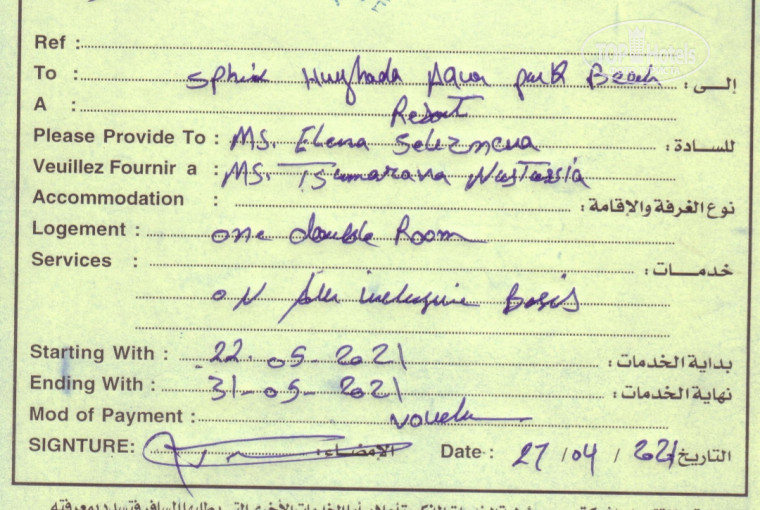 Ref :
To : Sphinx Hurghada Aqua park Beach إلى :
A : Resort
Please Provide To : MS. Elena Selezneva للسادة :
Veuillez Fournir a : MS. Tsumarava Nastassia
Accommodation : نوع الغرفة والإقامة :
Logement : one double Room
Services : خدمات :
oN All inclusive Basis
Starting With : 22-05-2021 بداية الخدمات :
Ending With : 31-05-2021 نهاية الخدمات :
Mod of Payment :
SIGNTURE: الإمضاء : Date : 27/04/2021 التاريخ